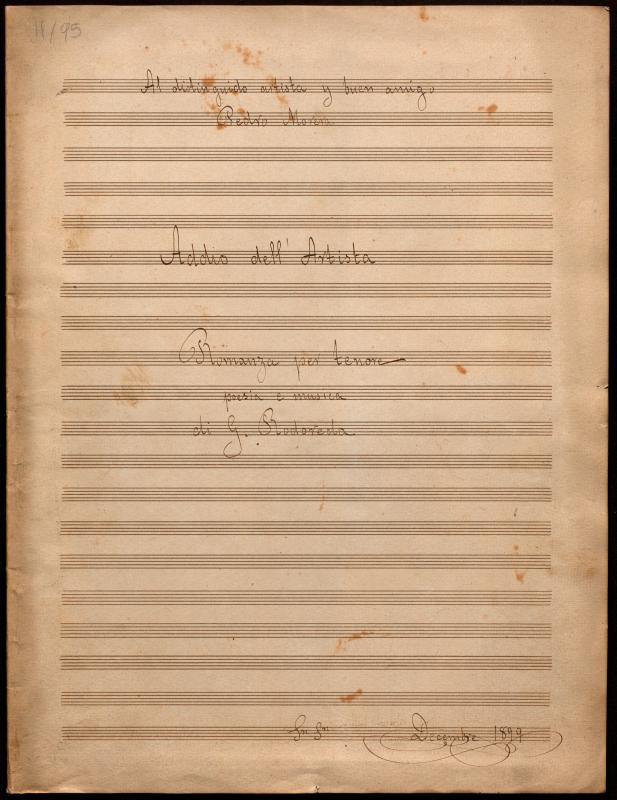 Al distinguido artista y buen amigo
Pedro
Addio dell' Artista
Romanza per tenore
poesia e musica
di G. Rodoreda
Decembre 1899